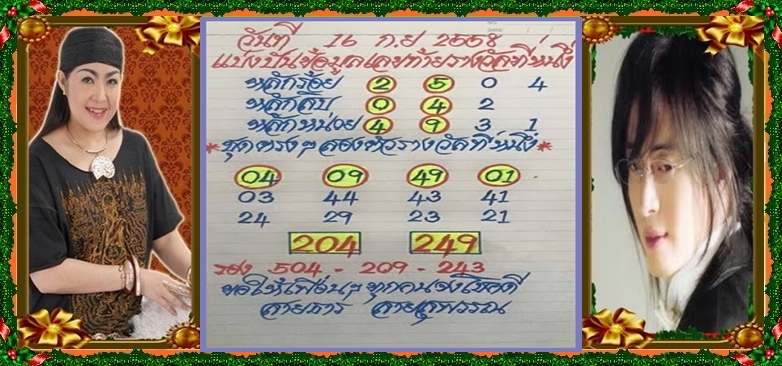 วันที่ 16 ก.ย 2558
แบ่งปันข้อมูลเลขท้ายรางวัลที่หนึ่ง
หลักร้อย 2 5 0 4
หลักสิบ 0 4 2
หลักหน่วย 4 9 3 1
*ชุดตรงๆสองตัวรางวัลที่หนึ่ง*
04 09 49 01
03 44 43 41
24 29 23 21
204 249
รอง 504 - 209 - 243
ขอให้เพื่อนๆทุกคนจงโชคดี
สายธาร สายสุพรรณ